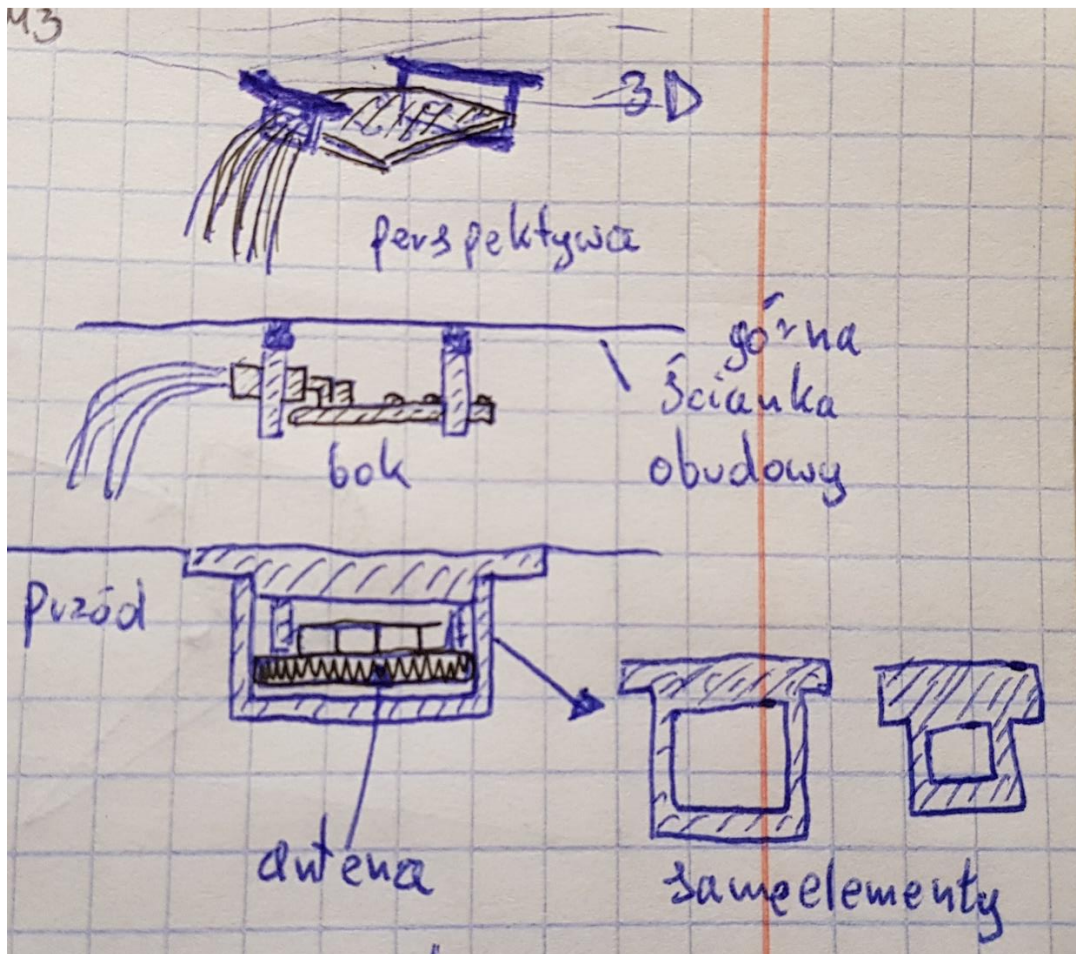 3D
perspektywa
górna
ścianka
obudowy
bok
przód
antena
same elementy